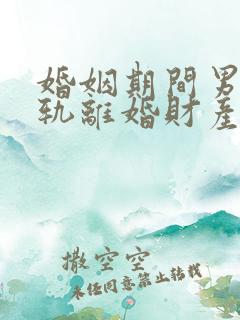 婚姻期間男
軌離婚財產
撒空空
未任同意禁止转载